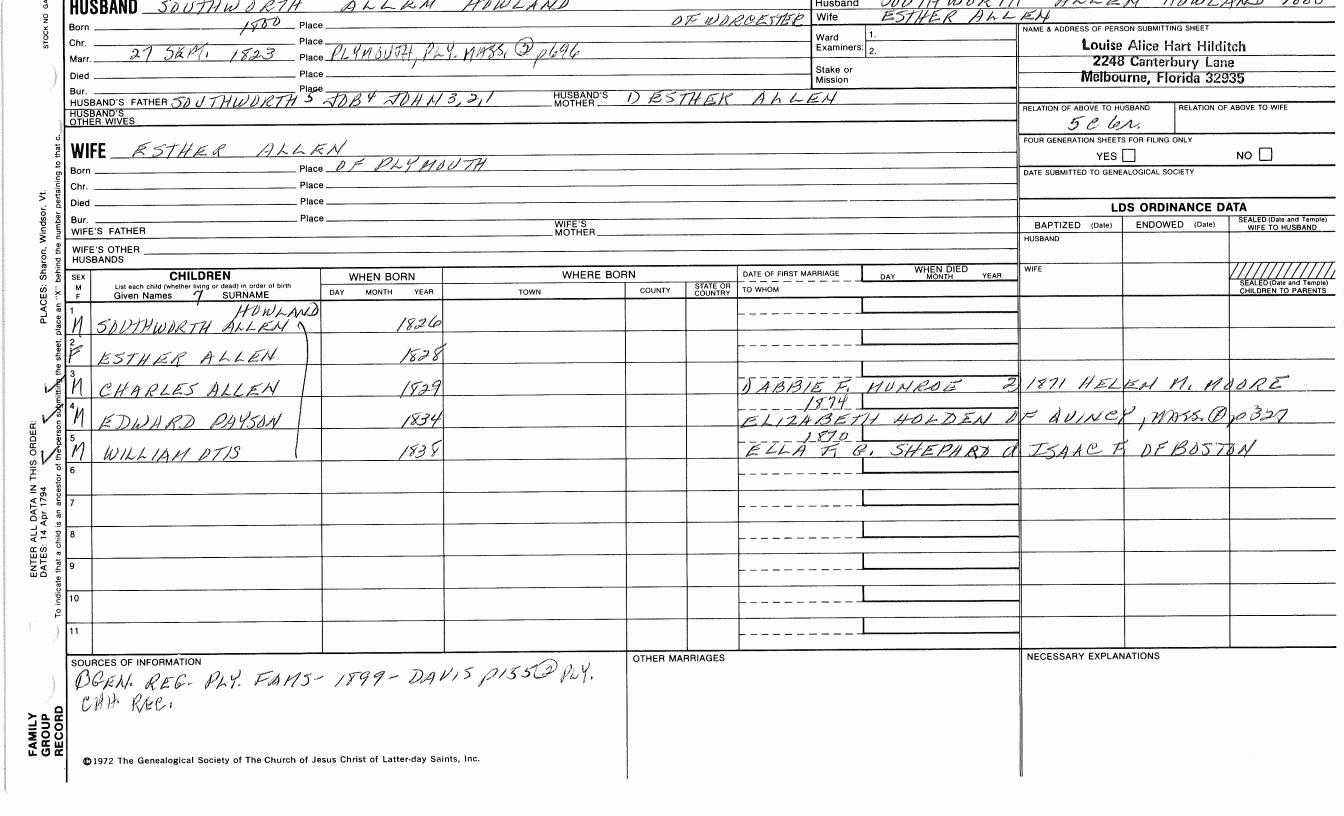 HUSBAND SOUTHWORTH ALLEN HOWLAND
Husband SOUTHWORTH ALLEN HOWLAND 1800
Wife ESTHER ALLEN
Born 1800 Place OF WORCESTER
Chr. Place
Marr. 27 SEPT. 1823 Place PLYMOUTH, PLY. MASS. ② p696
Died Place
Bur. Place
Ward Examiners: 1. 2.
Stake or Mission
NAME & ADDRESS OF PERSON SUBMITTING SHEET
Louise Alice Hart Hilditch
2248 Canterbury Lane
Melbourne, Florida 32935
HUSBAND'S FATHER SOUTHWORTH 5 JOB 4 JOHN 3,2,1 HUSBAND'S MOTHER 1) ESTHER ALLEN
HUSBAND'S OTHER WIVES
RELATION OF ABOVE TO HUSBAND RELATION OF ABOVE TO WIFE
5 C
FOUR GENERATION SHEETS FOR FILING ONLY
YES NO
DATE SUBMITTED TO GENEALOGICAL SOCIETY
WIFE ESTHER ALLEN
Born Place OF PLYMOUTH
Chr. Place
Died Place
Bur. Place
WIFE'S FATHER WIFE'S MOTHER
WIFE'S OTHER HUSBANDS
LDS ORDINANCE DATA
BAPTIZED (Date) ENDOWED (Date) SEALED (Date and Temple) WIFE TO HUSBAND
HUSBAND
WIFE
SEALED (Date and Temple) CHILDREN TO PARENTS
SEX M F
CHILDREN
List each child (whether living or dead) in order of birth
Given Names 7 SURNAME
WHEN BORN
DAY MONTH YEAR
WHERE BORN
TOWN COUNTY STATE OR COUNTRY
DATE OF FIRST MARRIAGE
TO WHOM
WHEN DIED
DAY MONTH YEAR
HOWLAND
1 M SOUTHWORTH ALLEN 1826
2 F ESTHER ALLEN 1828
3 M CHARLES ALLEN 1829 1) ABBIE F. MUNROE 2) 1871 HELEN M. MOORE
1874
4 M EDWARD PAYSON 1834 ELIZABETH HOLDEN OF QUINCY, MASS. ① p327
1870
5 M WILLIAM OTIS 1838 ELLA F. G. SHEPARD d ISAAC F. OF BOSTON
6
7
8
9
10
11
SOURCES OF INFORMATION
GEN. REG. PLY. FAMS- 1899- DAVIS p155 ② PLY.
CHH. REC.
OTHER MARRIAGES
NECESSARY EXPLANATIONS
©1972 The Genealogical Society of The Church of Jesus Christ of Latter-day Saints, Inc.
STOCK NO
PLACES: Sharon, Windsor, Vt.
ENTER ALL DATA IN THIS ORDER:
DATES: 14 Apr 1794
To indicate that a child is an ancestor of the person submitting the sheet, place an "X" behind the number pertaining to that c
FAMILY GROUP RECORD